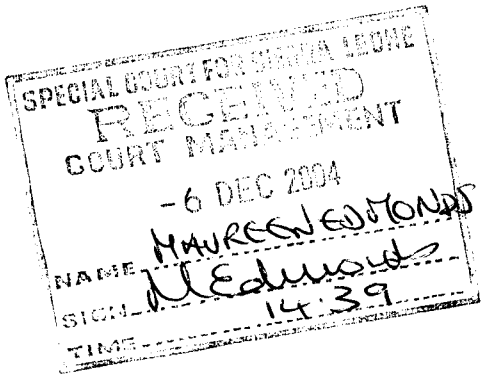 SPECIAL COURT FOR SIERRA LEONE
RECEIVED
COURT MANAGEMENT
-6 DEC 2004
NAME MAUREEN EDMONDS
SIGN MEdmonds
TIME 14:39